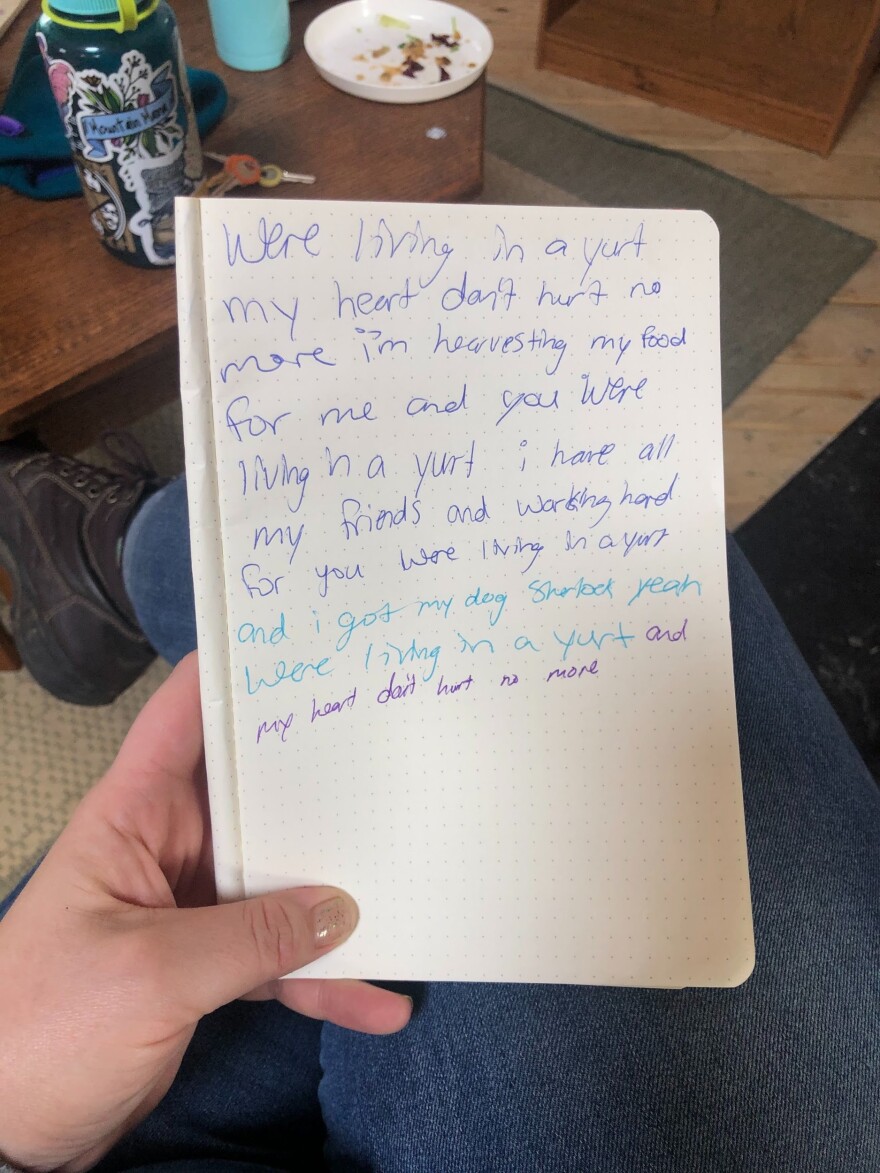 Mountain Mama
Were living in a yurt
my heart don't hurt no
more i'm hearvesting my food
for me and you Were
living in a yurt i have all
my friends and working hard
for you were living in a yurt
and i got my dog Sherlock yeah
Were living in a yurt and
my heart don't hurt no more